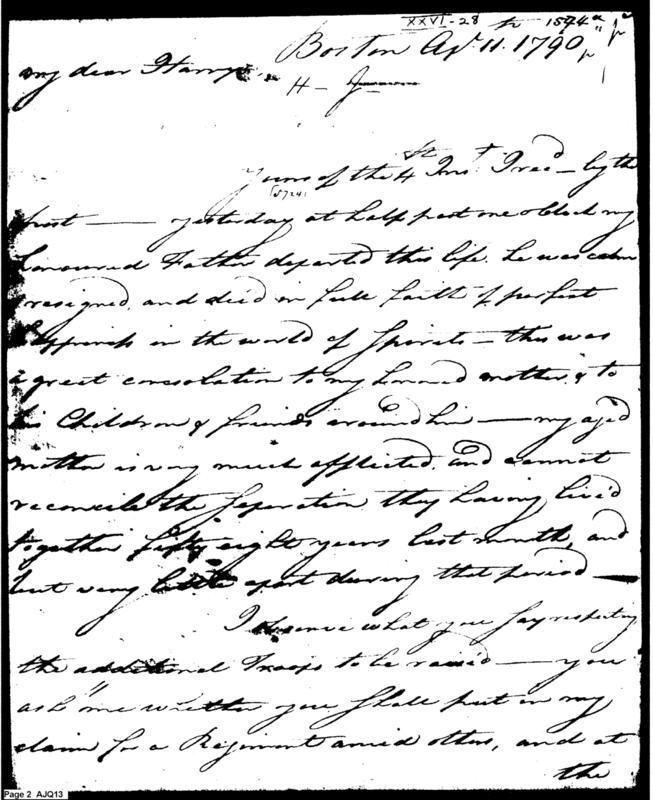 XXVI-28
Boston Apl. 11. 1790
my dear Harry.
H - J
Yours of the 4 Inst. I recd - by the
post — yesterday at half past one oClock my
honoured Father departed this life. he was calm
resigned, and died in full faith of perfect
Happiness in the world of Spirits - this was
a great consolation to my honored mother, & to
his Children & friends around him — my aged
mother is very much afflicted. and cannot
reconcile the Seperation they having liv'd
together fifty eight years last month, and
but very little apart during that period —
I observe what you Say respecting
the additional Troops to be raised — you
ask me whether you Shall put in my
claim for a Regiment amid others, and at
the
Page 2 AJQ13